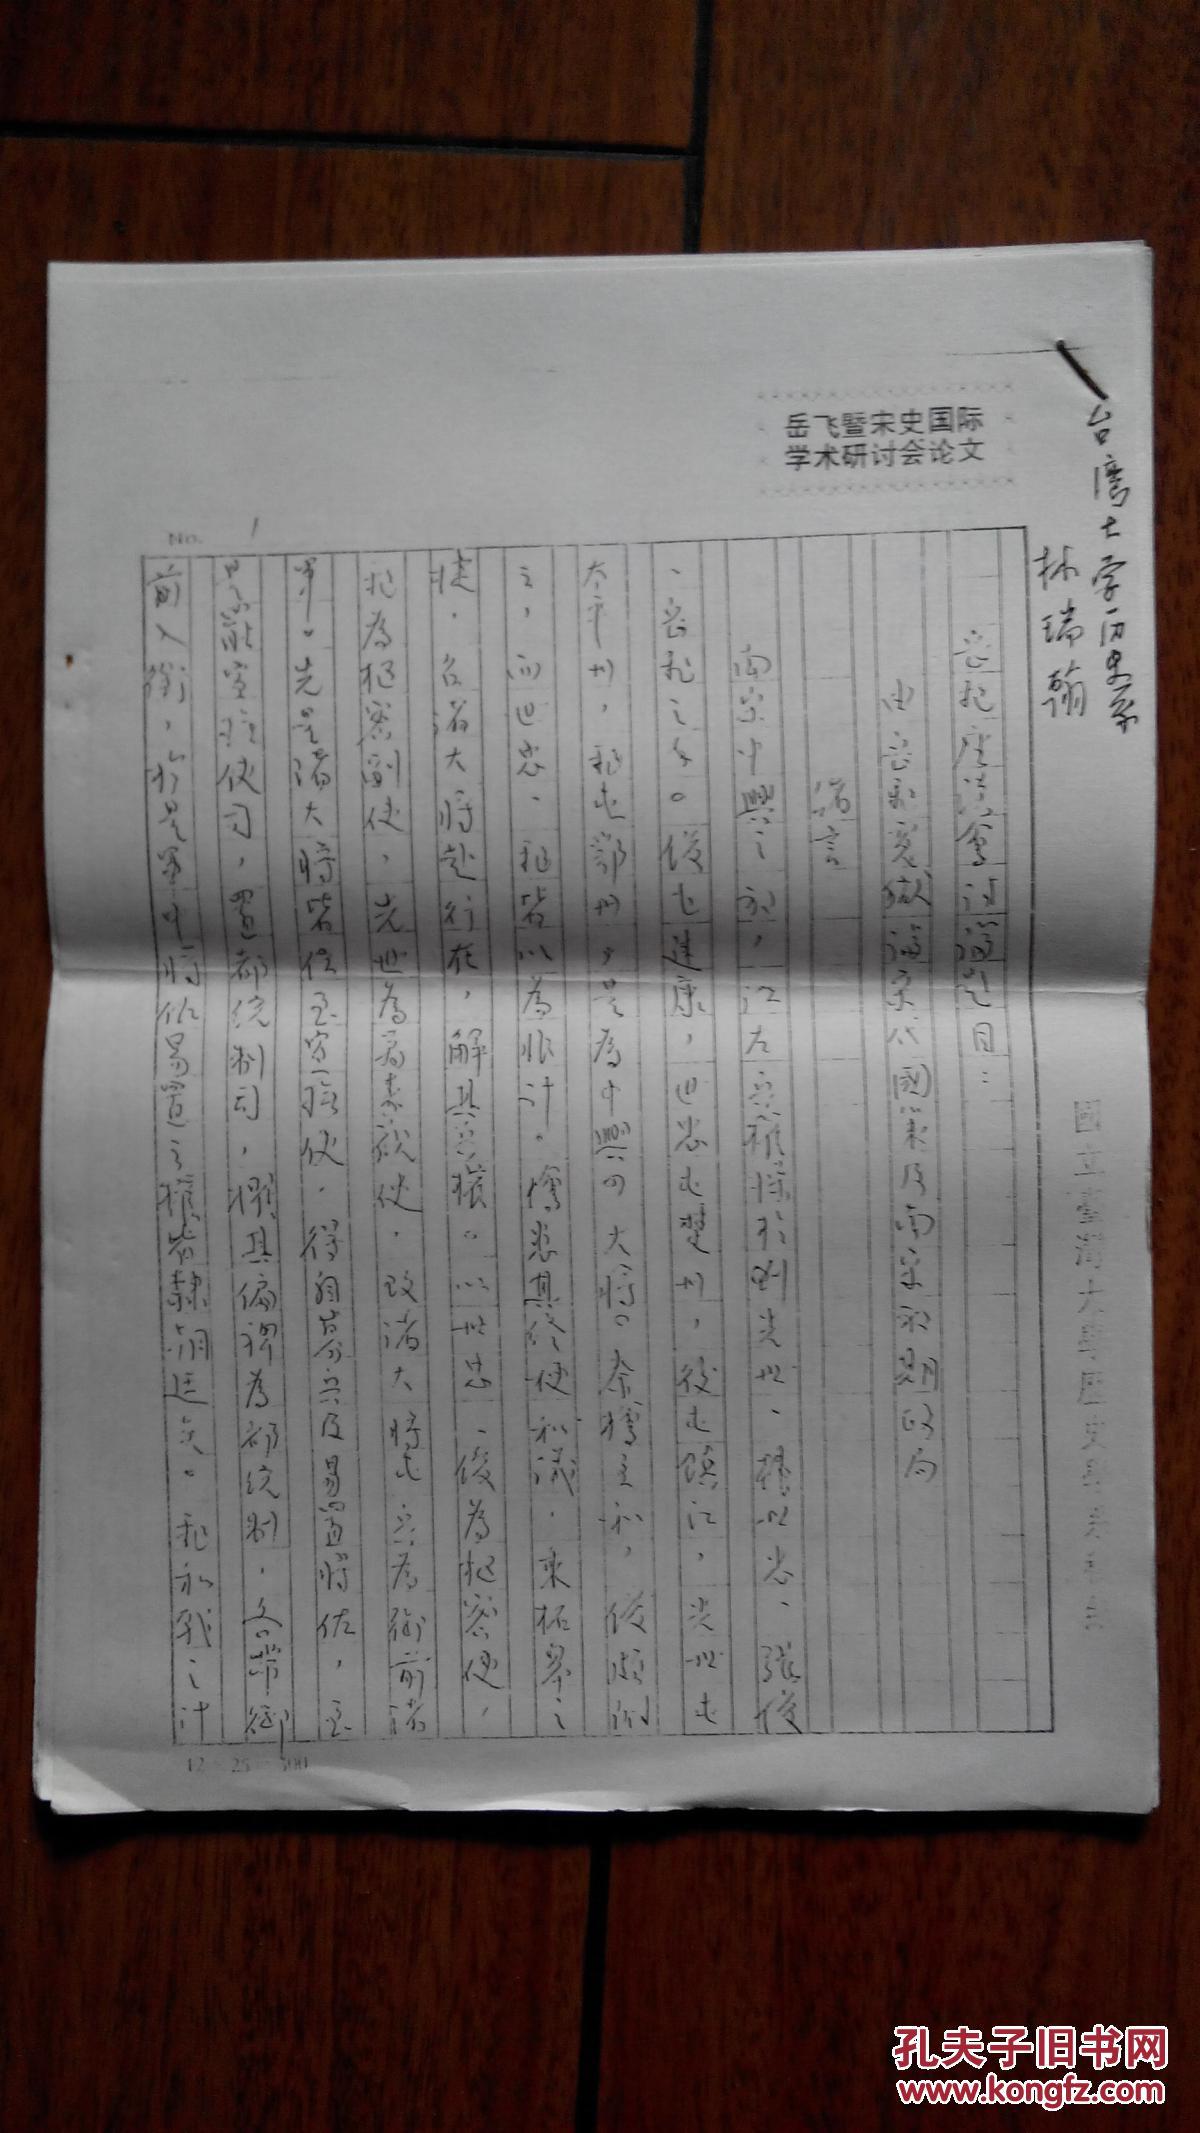 岳飞暨宋史国际
学术研讨会论文
台湾大学历史系
林瑞翰
國立臺灣大學歷史學系
岳飛座談會討論題目：
由岳飛冤獄論宋代國策及南宋初期政局
緒言
南宋中興之初，江左兵權操於劉光世、韓世忠、張俊
、岳飛之手。俊屯建康，世忠屯楚州，後屯鎮江，光世屯
太平州，飛屯鄂州，是為中興四大將。秦檜主和，俊附
之，而世忠、飛皆以為非計。檜患其終使和議，柘皋之
捷，召諸大將赴行在，解其兵權。以世忠、俊為樞密使，
飛為樞密副使，光世為萬壽觀使，改諸大將屯兵為御前諸
軍。先是諸大將皆任至宣撫使，得自募兵及易置將佐，至
是罷宣撫使司，置都統制司，擢其偏裨為都統制，各帶御
前入銜，於是軍中將佐易置之權皆隸朝廷矣。飛和戰之計
No. 1
12 25 300
孔夫子旧书网
www.kongfz.com